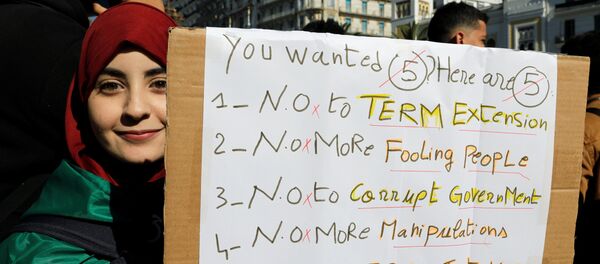 You wanted 5? Here are 5
1_ N.O x to TERM EXTENSION
2_ N.O x MORE FOOLING PEOPLE
3_ N.O x to CORRUPT GOVERNMENT
4_ N.O x MORE MANIPULATIONS